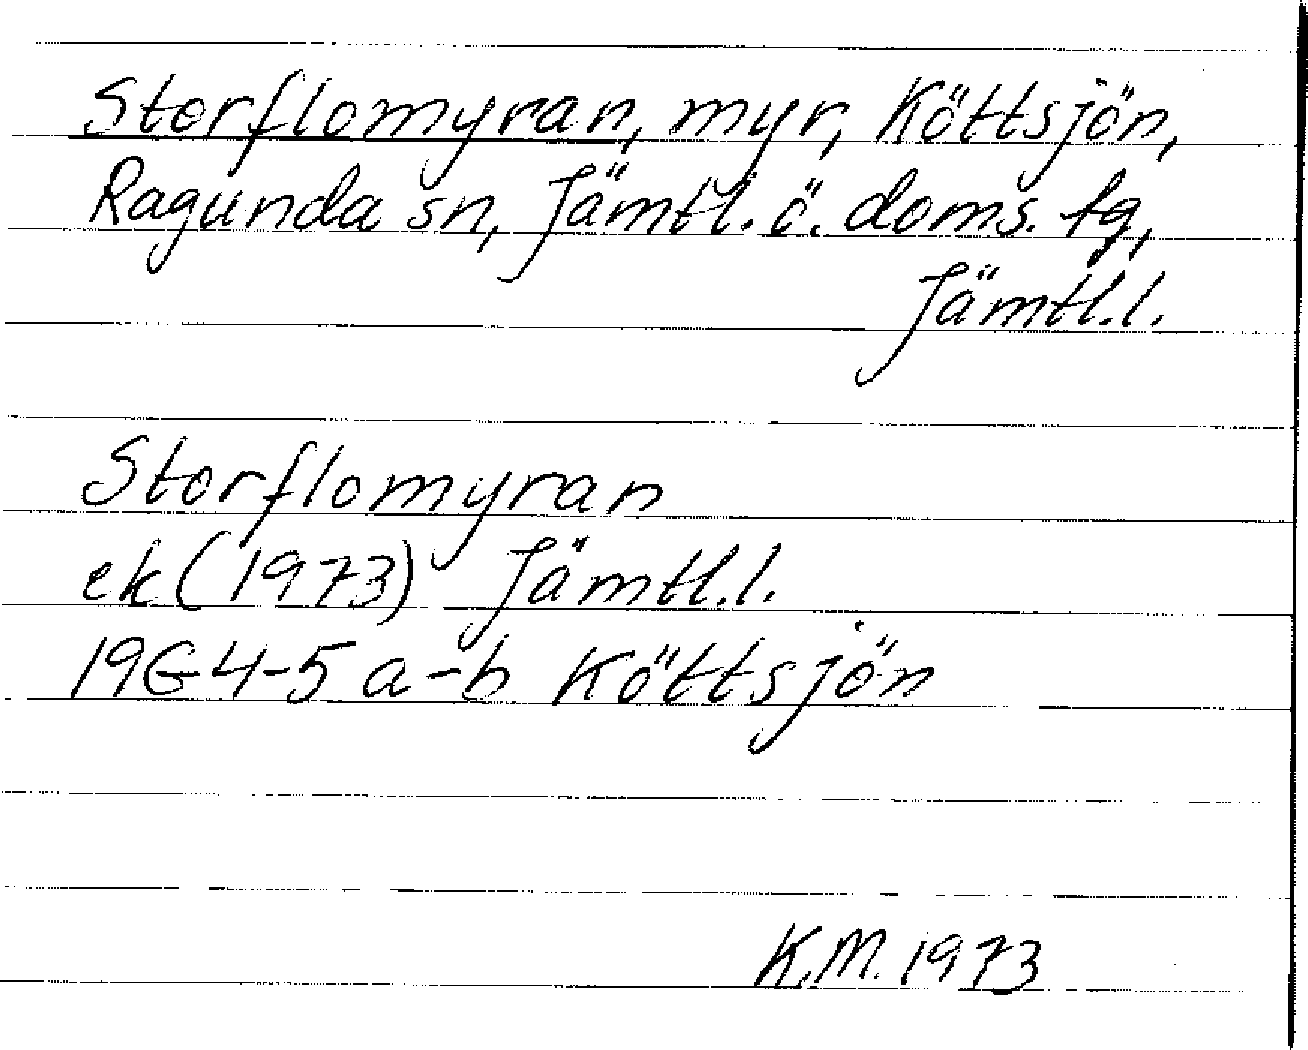 Storflomyran, myr, Köttsjön,
Ragunda sn, Jämtl. ö. doms. tg,
Jämtl.l.
Storflomyran
ek (1973) Jämtl.l.
19G 4-5 a-b Köttsjön
K.M. 1973